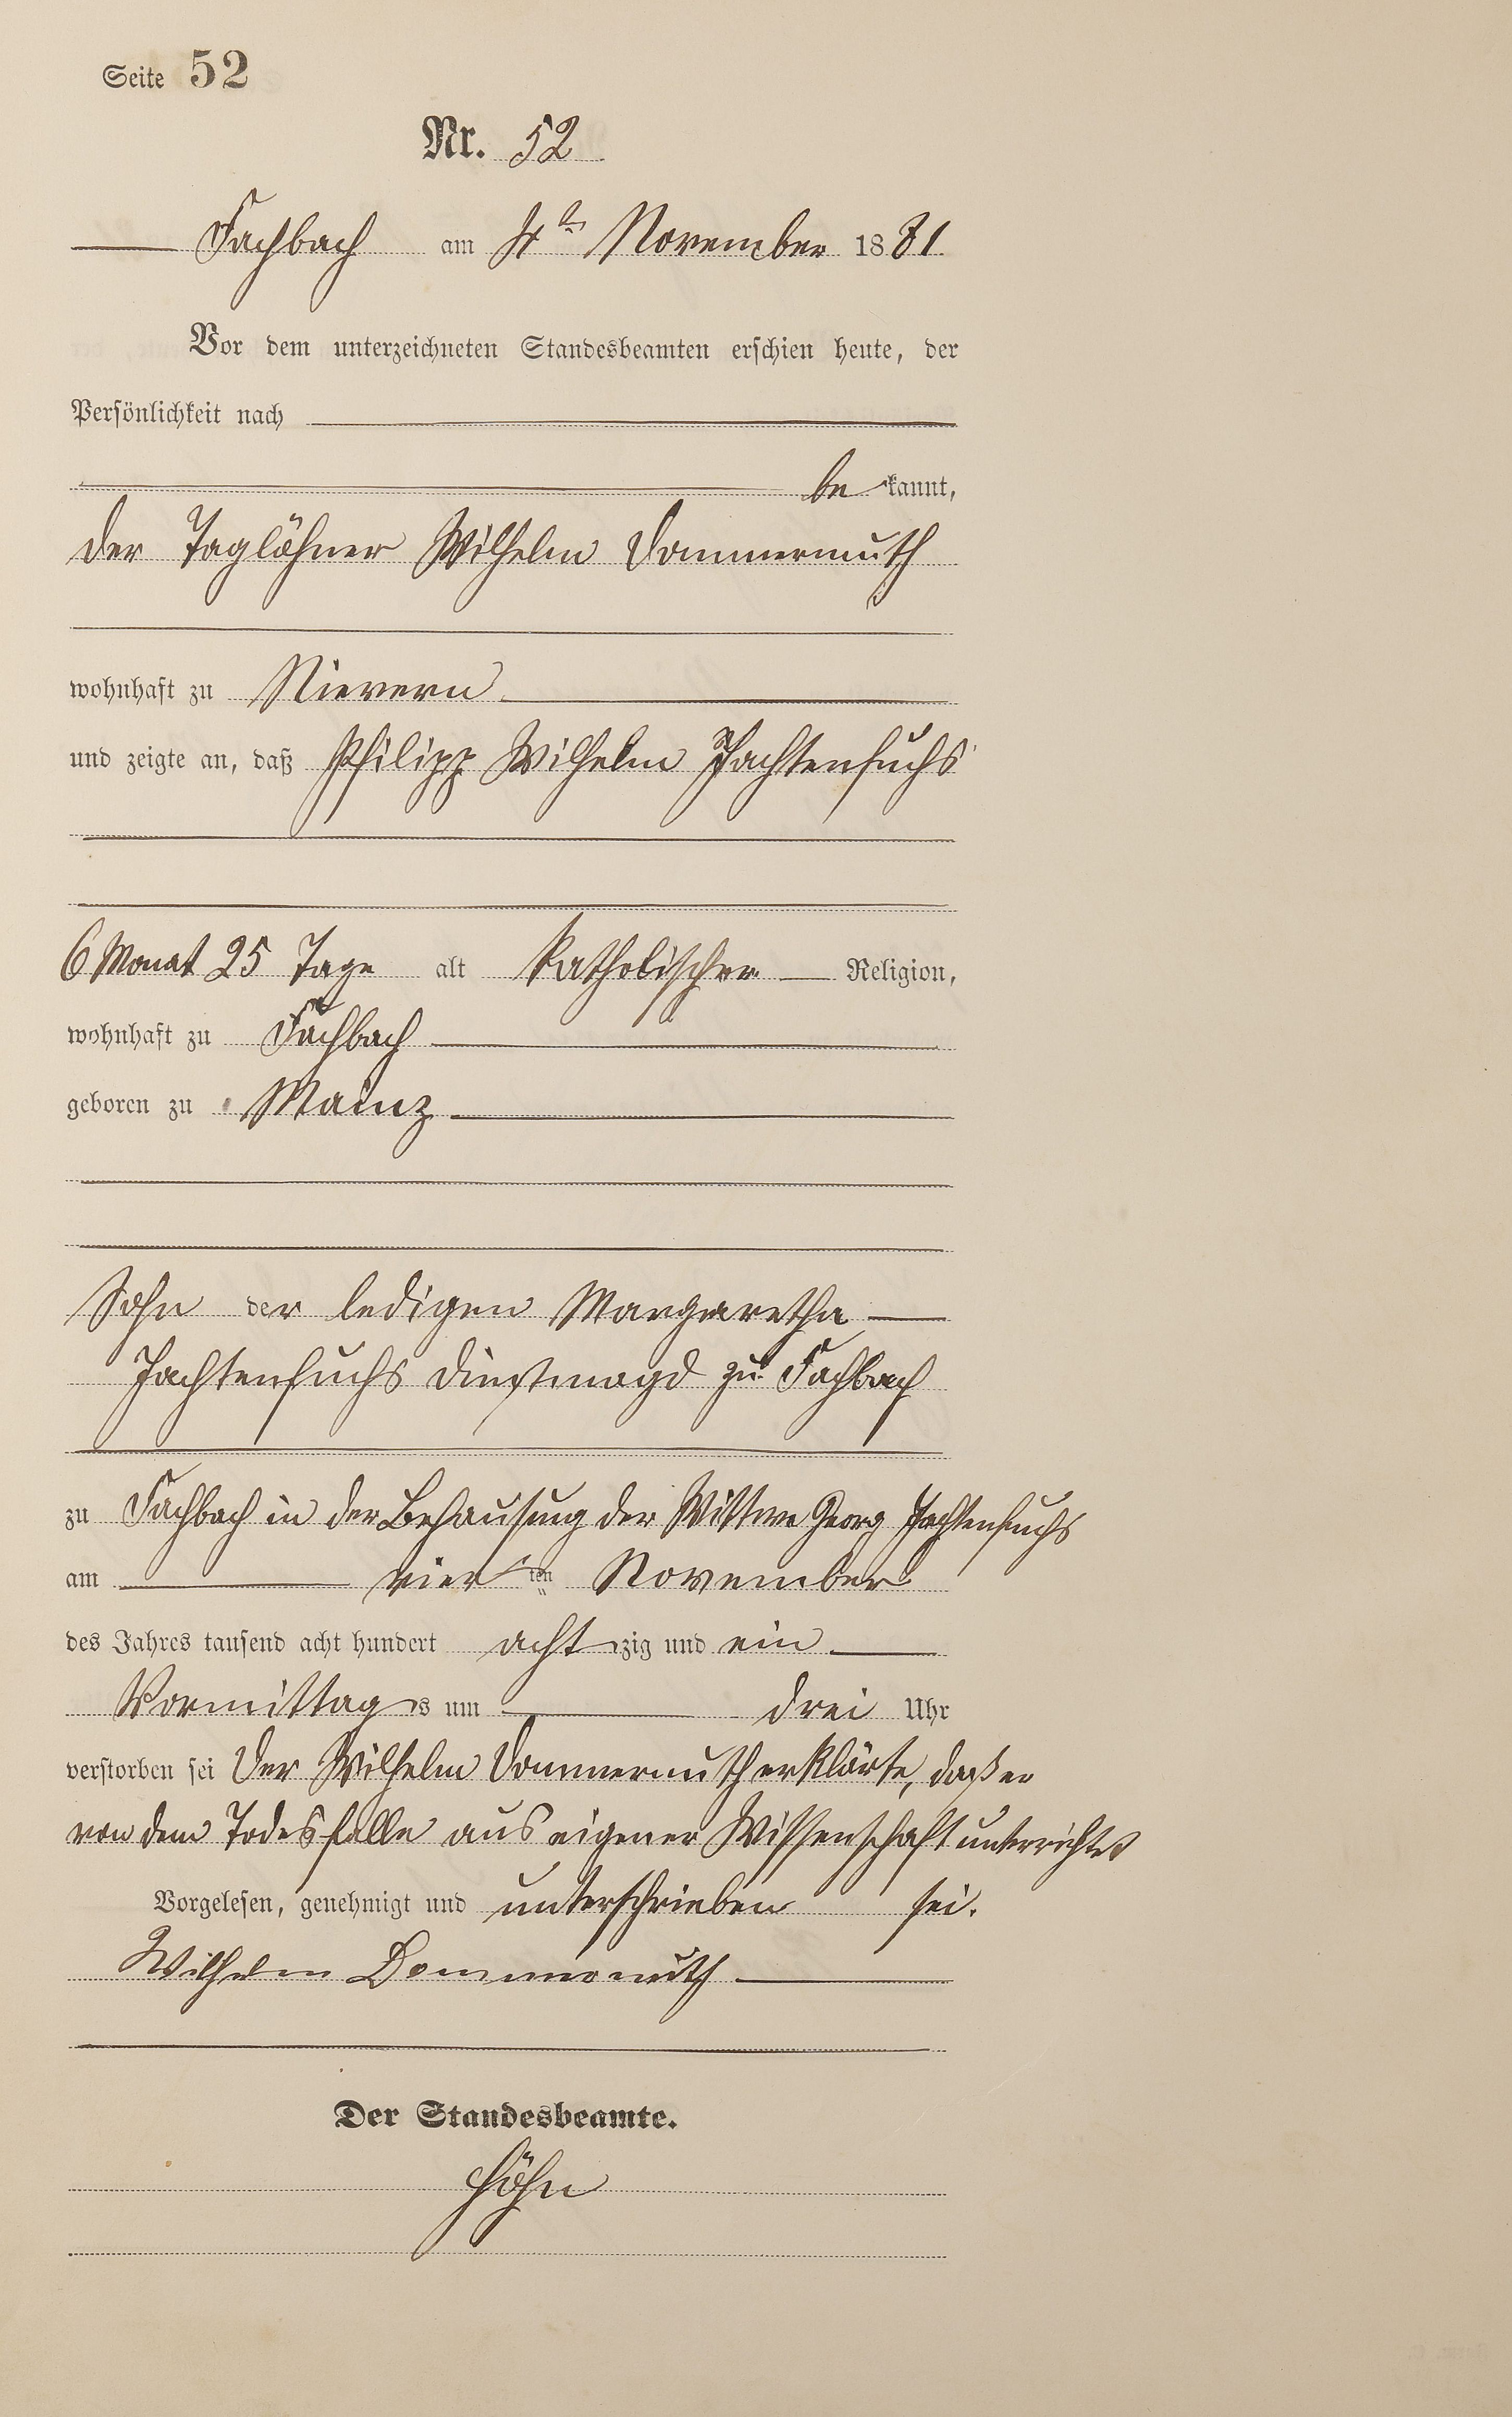 Seite 52
Nr. 52
Fachbach am 4ten November 1881
Vor dem unterzeichneten Standesbeamten erschien heute, der
Persönlichkeit nach
be kannt,
der Taglöhner Wilhelm Dommermuth
wohnhaft zu Nievern
und zeigte an, daß Philipp Wilhelm Pfachtenfuchs
6 Monat 25 Tage alt katholischer Religion,
wohnhaft zu Fachbach
geboren zu Mainz
Sohn der ledigen Margaretha
Dienstmagd zu Fachbach
zu Fachbach in der Behausung der Wittwe Georg
am vier ten November
des Jahres tausend acht hundert acht zig und ein
Vormittag s um drei Uhr
verstorben sei Der Wilhelm Dommermuth erklärte, daß er
von dem Todesfalle aus eigener Wissenschaft unterrichtet
Vorgelesen, genehmigt und unterschrieben sei.
Wilhelm Dommermuth
Der Standesbeamte.
Höhn